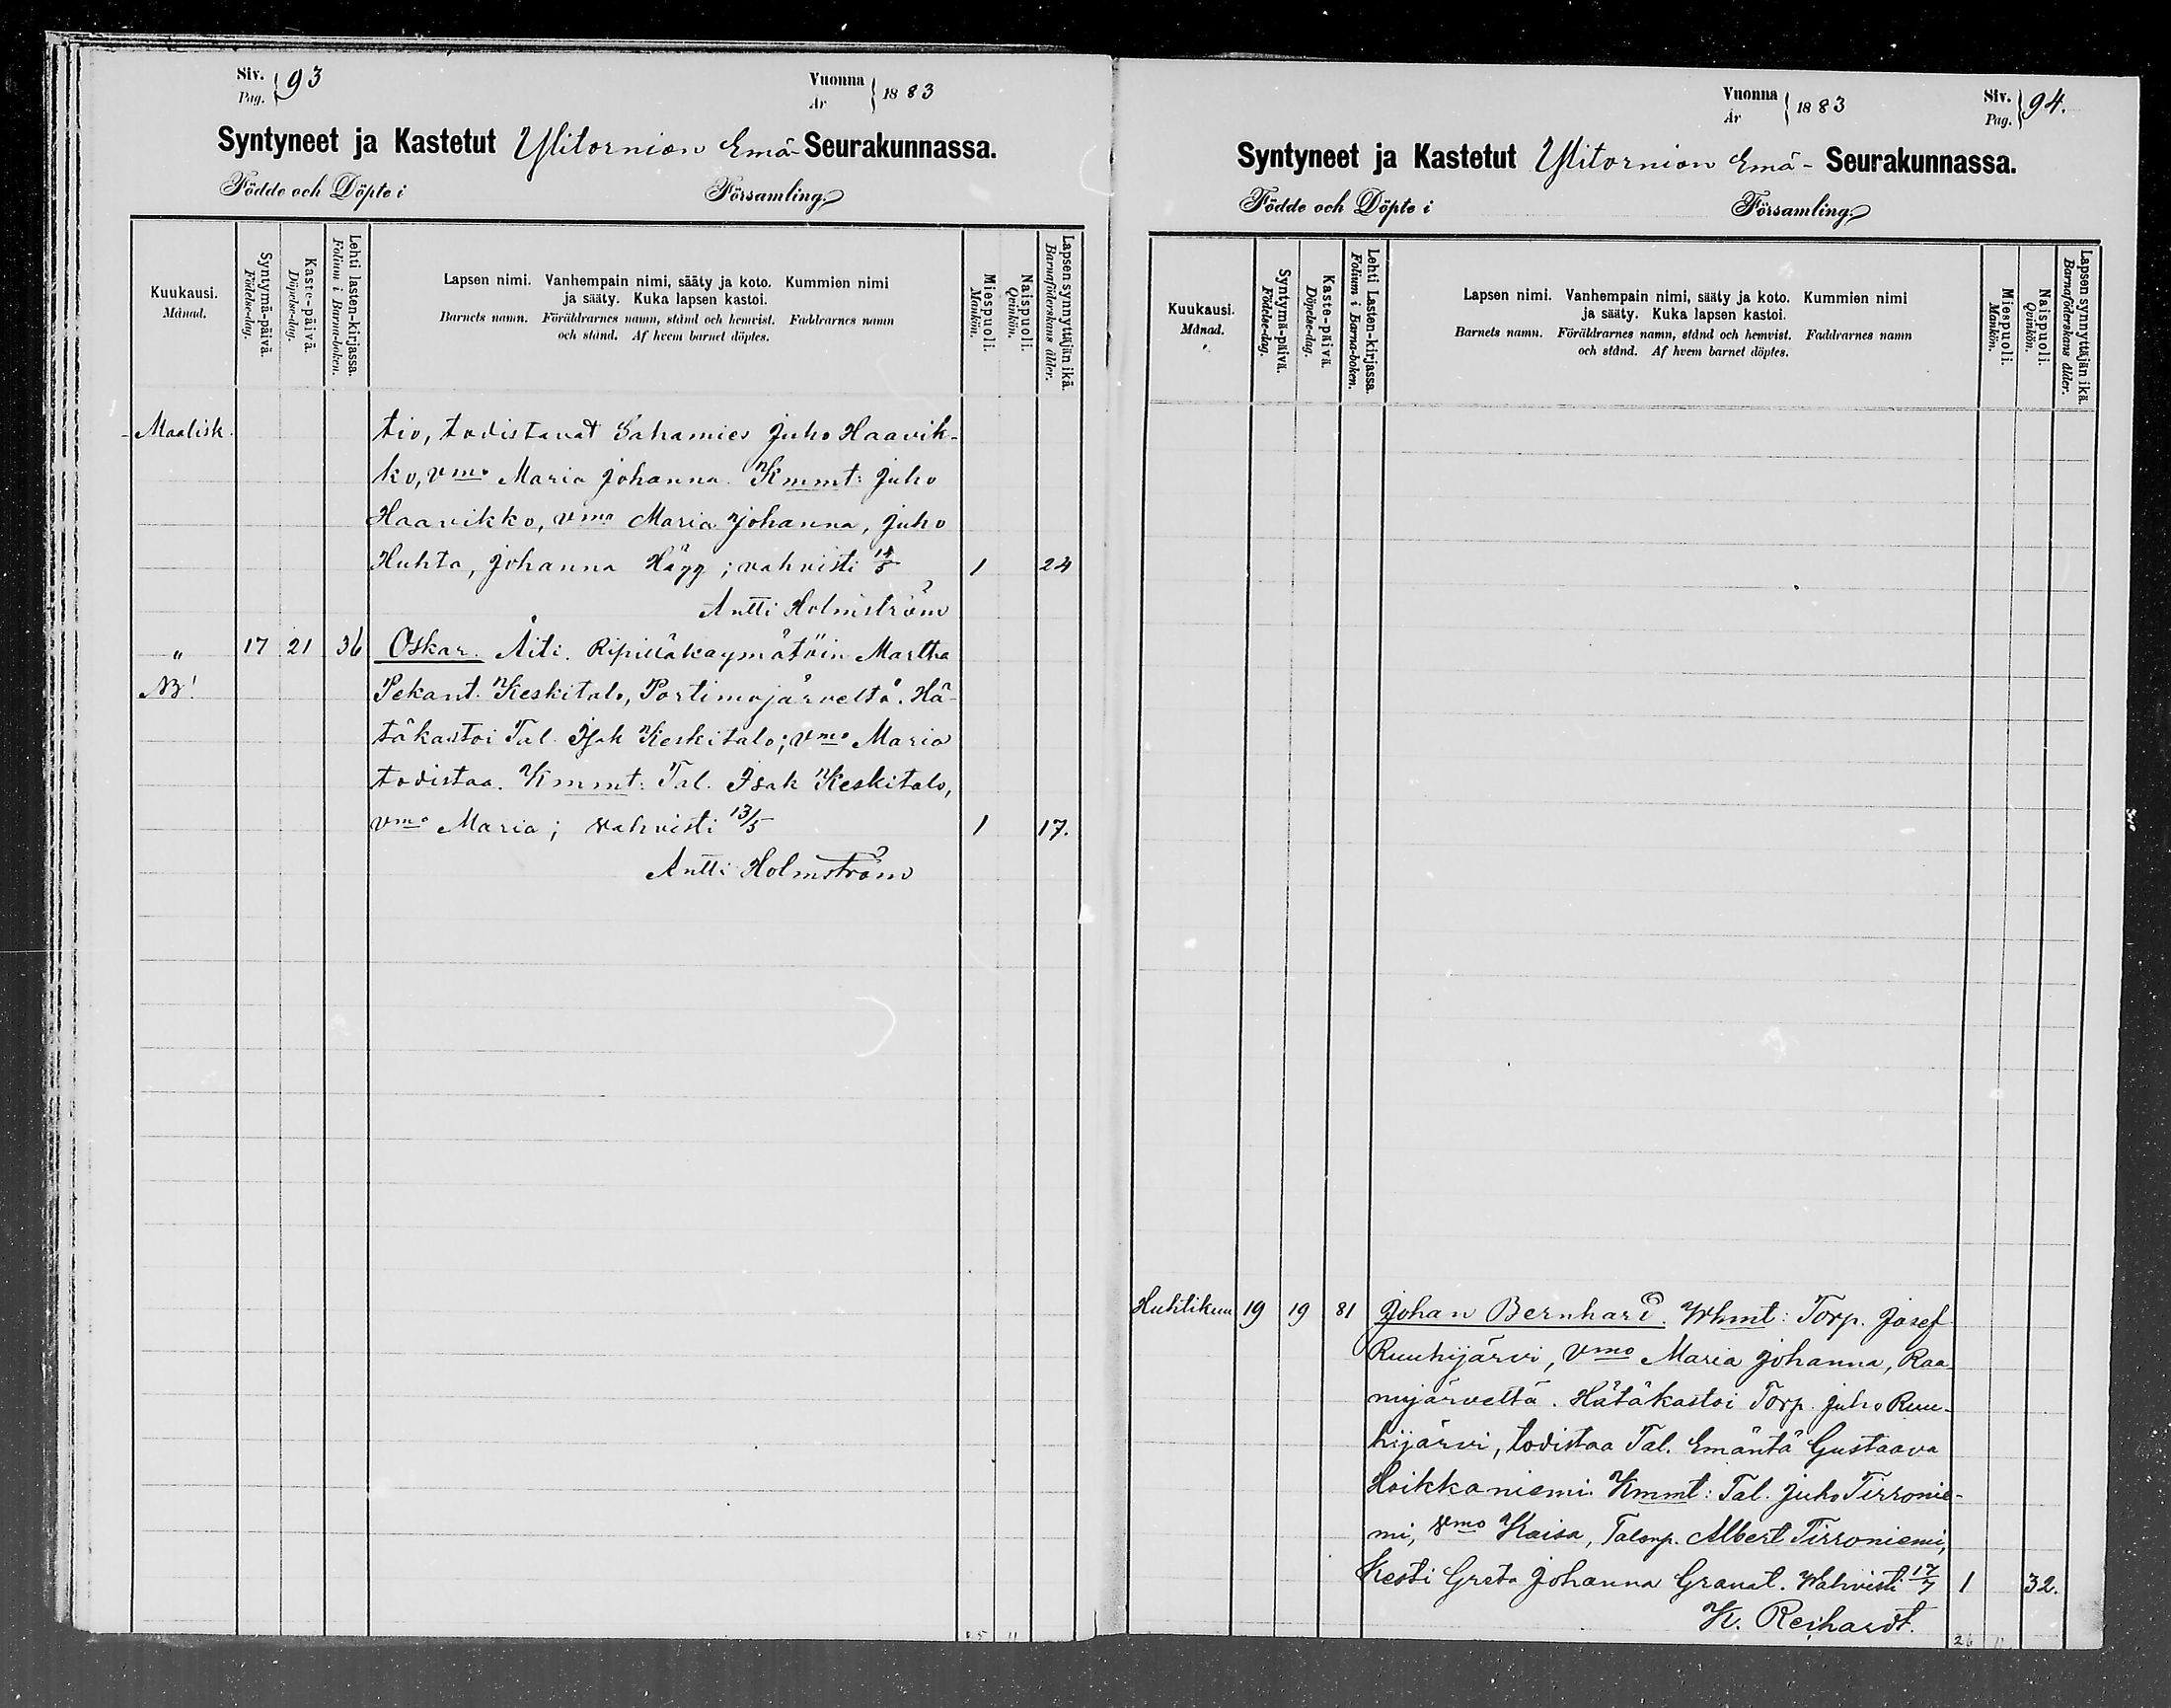 Siv. 93
Pag.
Vuonna 1883
År
Syntyneet ja Kastetut Ylitornion Emä-Seurakunnassa.
Födde och Döpte i Församling.
Kuukausi.
Månad.
Syntymä-päivä.
Födelse-dag.
Kaste-päivä.
Döpelse-dag.
Lehti lasten-kirjassa.
Folium i Barna-boken.
Lapsen nimi. Vanhempain nimi, sääty ja koto. Kummien nimi
ja sääty. Kuka lapsen kastoi.
Barnets namn. Föräldrarnes namn, stånd och hemvist. Faddrarnes namn
och stånd. Af hvem barnet döptes.
Miespuoli.
Mankön.
Naispuoli.
Qvinkön.
Lapsen synnyttäjän ikä.
Barnaföderskans ålder.
Maalisk. tio, todistavat Sahamies Juho Haavik-
ko, vmo Maria Johanna. Kmmt: Juho
Haavikko, vmo Maria Johanna, Juho
Huhta, Johanna Hägg; vahvisti 1 24
Antti Holmström
" 17 21 36 Oskar. Äiti. Ripilläkaymätöin Martha
NB! Pekant. Keskitalo, Portimojärveltä. Hä-
täkastoi Tal. Isak Keskitalo; vmo Maria
todistaa. Kmmt: Tal. Isak Keskitalo,
vmo Maria; vahvisti 13/5 1 17.
Antti Holmström
Vuonna 1883
År
Siv. 94.
Pag.
Syntyneet ja Kastetut Ylitornion Emä- Seurakunnassa.
Födde och Döpte i Församling.
Kuukausi.
Månad.
Syntymä-päivä.
Födelse-dag.
Kaste-päivä.
Döpelse-dag.
Lehti Lasten-kirjassa.
Folium i Barna-boken.
Lapsen nimi. Vanhempain nimi, sääty ja koto. Kummien nimi
ja sääty. Kuka lapsen kastoi.
Barnets namn. Föräldrarnes namn, stånd och hemvist. Faddrarnes namn
och stånd. Af hvem barnet döptes.
Miespuoli.
Mankön.
Naispuoli.
Qvinkön.
Lapsen synnyttäjän ikä.
Barnaföderskans ålder.
Huhtikuu 19 19 81 Johan Bernhard. Whmt: Torp. Josef
Ruuhijärvi, Vmo Maria Johanna, Raa
nujärveltä. Hätäkastoi Torp. Juho Ruu-
hijärvi, todistaa Tal. Emäntä Gustaava
Hoikkaniemi. Kmmt: Tal. Juho Tirronie-
mi, vmo Kaisa, Talonp. Albert Tirroniemi,
Kesti Greta Johanna Granat. Wahvisti 17/7 1 32.
K. Reihardt.